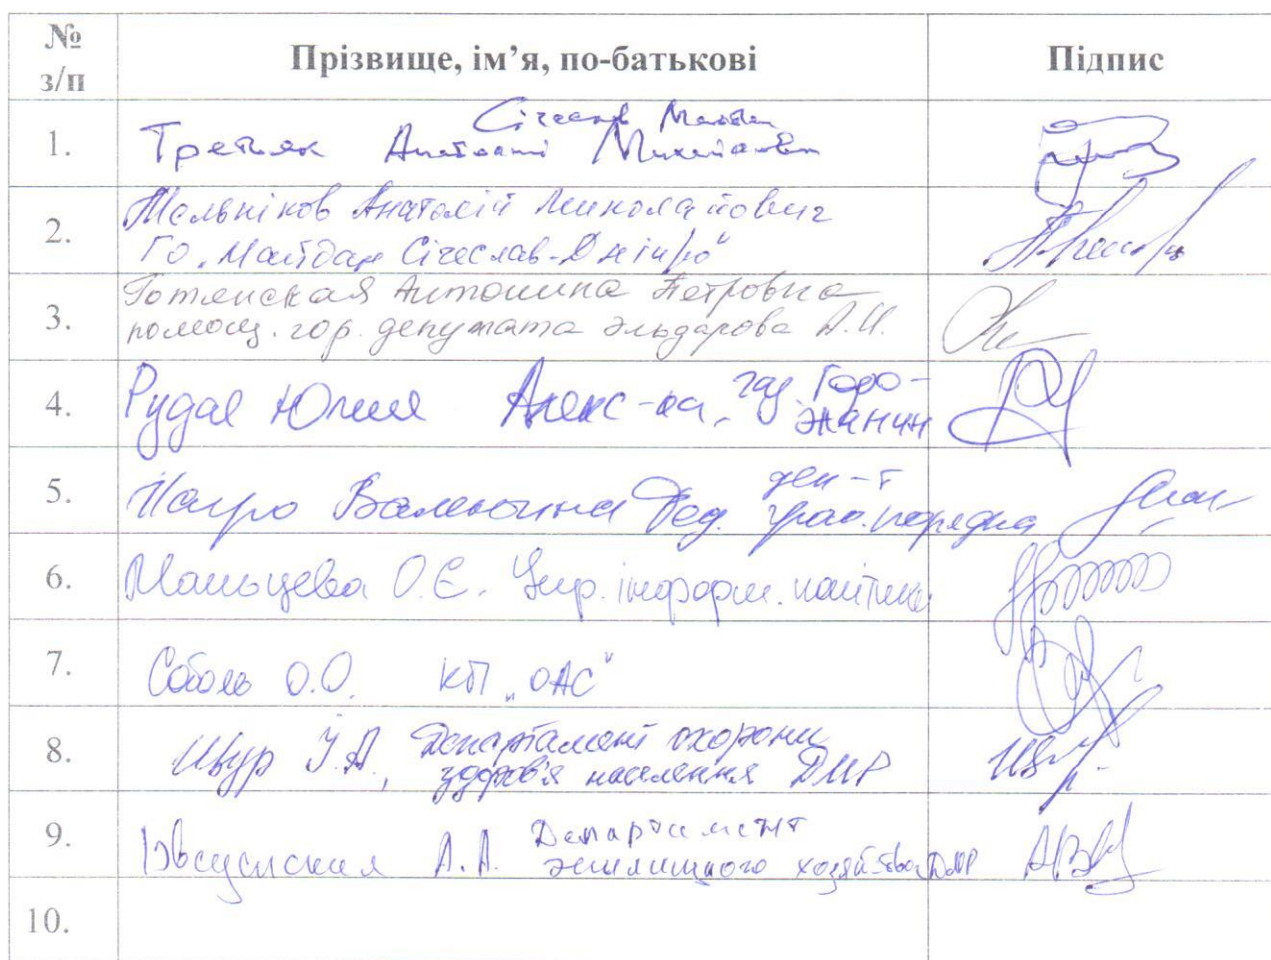 № з/п Прізвище, ім’я, по-батькові Підпис
Січеслав Майдан
1. Третяк Анатолій Михайлович
2. Мельніков Анатолій Миколайович
ГО „Майдан Січеслав-Дніпро"
3. Антонина Петровна
помощ. гор. депутата Эльдарова А.И.
4. Рудая Юлия Алекс-на, газ. Горо-
жанин
5. Валентина
6. Мальцева О.Є. Упр. інформ. політики
7. Соболь О.О. КП „ОАС"
8. Щур І.А., Департамент охорони
здоров'я населення ДМР
9. А.А. Департамент
жилищного хозяйства ДМР
10.